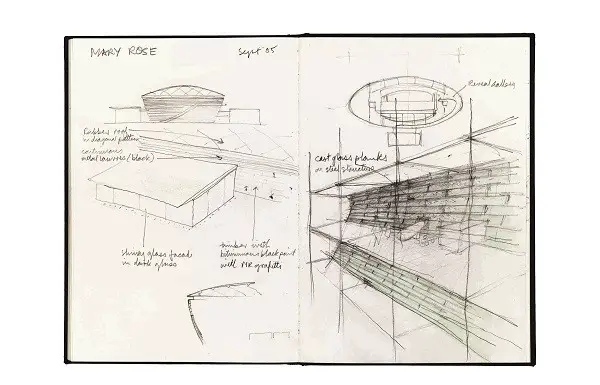 MARY ROSE
Sept 05
Rubber roof
in diagonal pattern
continuous
metal louvres (black)
shiny glass facade
in dark glass
timber with
bituminous black paint
with MR graffiti
Reveal Gallery
cast glass planks
on steel structure